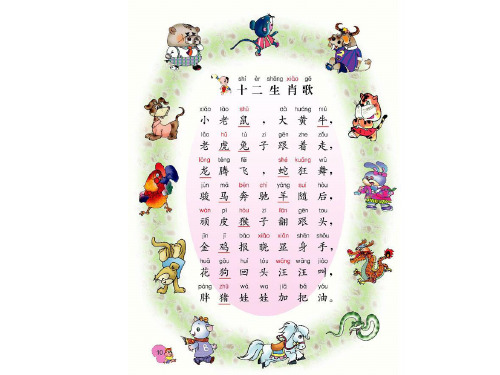 shí èr shēng xiāo gē
十二生肖歌
xiǎo lǎo shǔ dà huáng niú
小老鼠，大黄牛，
lǎo hǔ tù zi gēn zhe zǒu
老虎兔子跟着走，
lóng téng fēi shé kuáng wǔ
龙腾飞，蛇狂舞，
jùn mǎ bēn chí yáng suí hòu
骏马奔驰羊随后，
wán pí hóu zi fān gēn tou
顽皮猴子翻跟头，
jīn jī bào xiǎo xiǎn shēn shǒu
金鸡报晓显身手，
huā gǒu huí tóu wāng wāng jiào
花狗回头汪汪叫，
pàng zhū wá wa jiā bǎ yóu
胖猪娃娃加把油。
10